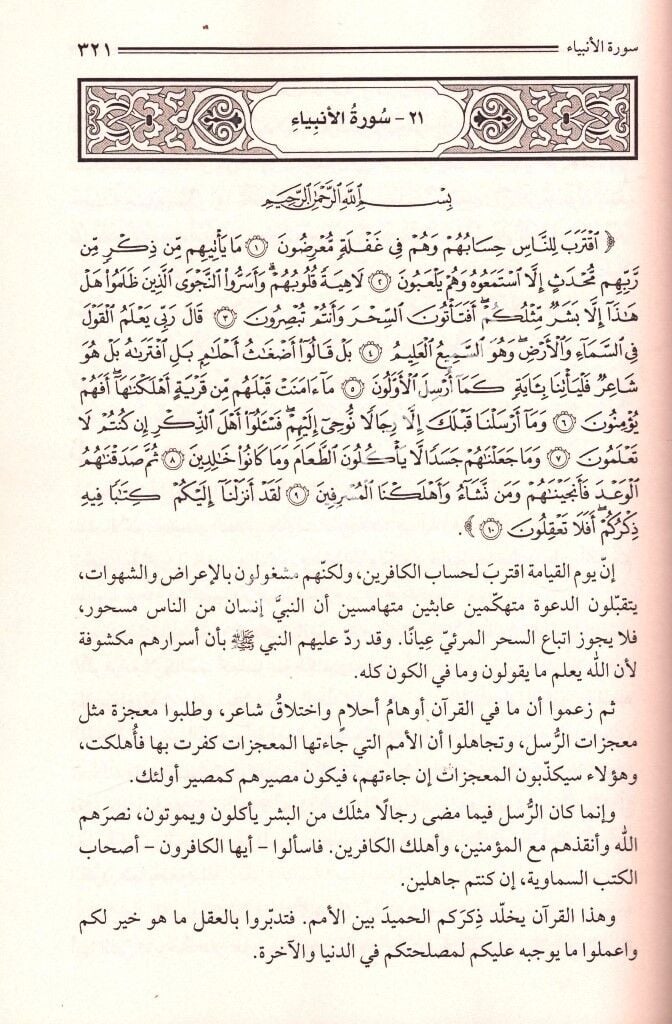 سورة الأنبياء ٣٢١
٢١ - سُورةُ الأنبِياءِ
بِسْمِ اللَّهِ الرَّحْمَٰنِ الرَّحِيمِ
﴿ ٱقْتَرَبَ لِلنَّاسِ حِسَابُهُمْ وَهُمْ فِى غَفْلَةٍ مُّعْرِضُونَ ١ مَا يَأْتِيهِم مِّن ذِكْرٍ مِّن
رَّبِّهِم مُّحْدَثٍ إِلَّا ٱسْتَمَعُوهُ وَهُمْ يَلْعَبُونَ ٢ لَاهِيَةً قُلُوبُهُمْ ۗ وَأَسَرُّوا۟ ٱلنَّجْوَى ٱلَّذِينَ ظَلَمُوا۟ هَلْ
هَٰذَآ إِلَّا بَشَرٌ مِّثْلُكُمْ ۖ أَفَتَأْتُونَ ٱلسِّحْرَ وَأَنتُمْ تُبْصِرُونَ ٣ قَالَ رَبِّى يَعْلَمُ ٱلْقَوْلَ
فِى ٱلسَّمَآءِ وَٱلْأَرْضِ ۖ وَهُوَ ٱلسَّمِيعُ ٱلْعَلِيمُ ٤ بَلْ قَالُوٓا۟ أَضْغَٰثُ أَحْلَٰمٍۭ بَلِ ٱفْتَرَىٰهُ بَلْ هُوَ
شَاعِرٌ فَلْيَأْتِنَا بِـَٔايَةٍ كَمَآ أُرْسِلَ ٱلْأَوَّلُونَ ٥ مَآ ءَامَنَتْ قَبْلَهُم مِّن قَرْيَةٍ أَهْلَكْنَٰهَآ ۖ أَفَهُمْ
يُؤْمِنُونَ ٦ وَمَآ أَرْسَلْنَا قَبْلَكَ إِلَّا رِجَالًا نُّوحِىٓ إِلَيْهِمْ ۖ فَسْـَٔلُوٓا۟ أَهْلَ ٱلذِّكْرِ إِن كُنتُمْ لَا
تَعْلَمُونَ ٧ وَمَا جَعَلْنَٰهُمْ جَسَدًا لَّا يَأْكُلُونَ ٱلطَّعَامَ وَمَا كَانُوا۟ خَٰلِدِينَ ٨ ثُمَّ صَدَقْنَٰهُمُ
ٱلْوَعْدَ فَأَنجَيْنَٰهُمْ وَمَن نَّشَآءُ وَأَهْلَكْنَا ٱلْمُسْرِفِينَ ٩ لَقَدْ أَنزَلْنَآ إِلَيْكُمْ كِتَٰبًا فِيهِ
ذِكْرُكُمْ ۖ أَفَلَا تَعْقِلُونَ ١٠ ﴾.
إنّ يوم القيامة اقتربَ لحساب الكافرين، ولكنّهم مشغولون بالإعراض والشهوات،
يتقبّلون الدعوة متهكّمين عابثين متهامسين أن النبيَّ إنسان من الناس مسحور،
فلا يجوز اتباع السحر المرئيّ عِيانًا. وقد ردّ عليهم النبي ﷺ بأن أسرارهم مكشوفة
لأن الله يعلم ما يقولون وما في الكون كله.
ثم زعموا أن ما في القرآن أوهامُ أحلامٍ واختلاقُ شاعر، وطلبوا معجزة مثل
معجزات الرُّسل، وتجاهلوا أن الأمم التي جاءتها المعجزات كفرت بها فأُهلكت،
وهؤلاء سيكذّبون المعجزات إن جاءتهم، فيكون مصيرهم كمصير أولئك.
وإنما كان الرُّسل فيما مضى رجالًا مثلَك من البشر يأكلون ويموتون، نصرَهم
الله وأنقذهم مع المؤمنين، وأهلك الكافرين. فاسألوا – أيها الكافرون – أصحاب
الكتب السماوية، إن كنتم جاهلين.
وهذا القرآن يخلّد ذِكرَكم الحميدَ بين الأمم. فتدبّروا بالعقل ما هو خير لكم
واعملوا ما يوجبه عليكم لمصلحتكم في الدنيا والآخرة.